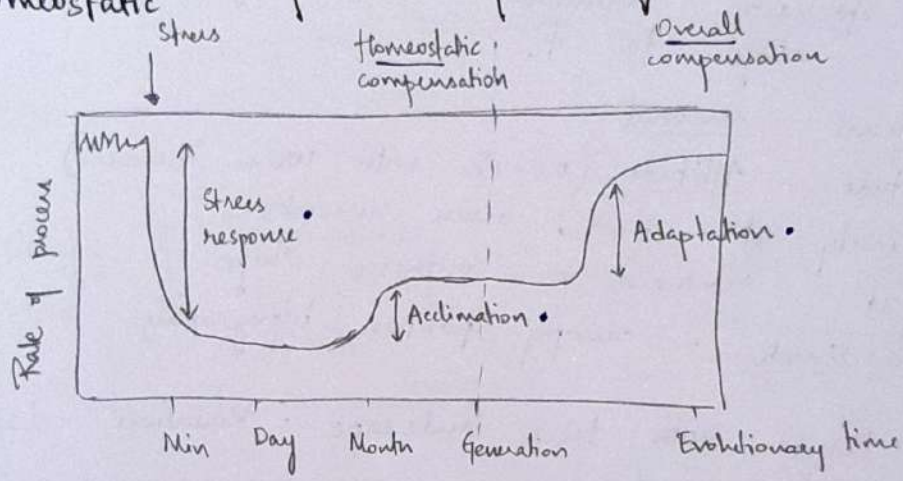 meostatic
Stress
Homeostatic
compensation
Overall
compensation
Rate of process
Stress
response
Adaptation
Acclimation
Min Day Month Generation Evolutionary time